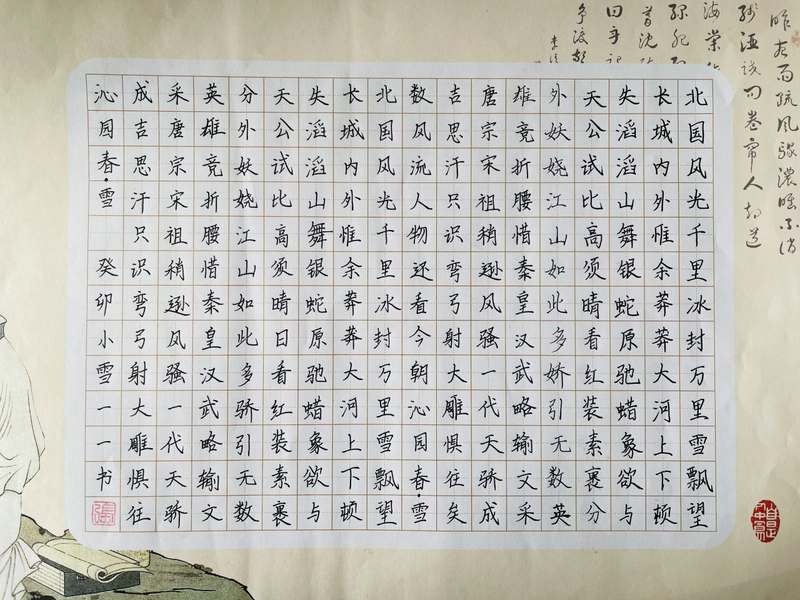 昨夜雨疏风骤濃睡不消
残酒试问卷帘人却道
海棠
北国风光千里冰封万里雪飘望
长城内外惟余莽莽大河上下顿
失滔滔山舞银蛇原驰蜡象欲与
天公试比高须晴看红装素裹分
外妖娆江山如此多娇引无数英
雄竞折腰惜秦皇汉武略输文采
唐宗宋祖稍逊风骚一代天骄成
吉思汗只识弯弓射大雕惧往矣
数风流人物还看今朝沁园春·雪
北国风光千里冰封万里雪飘望
长城内外惟余莽莽大河上下顿
失滔滔山舞银蛇原驰蜡象欲与
天公试比高须晴日看红装素裹
分外妖娆江山如此多骄引无数
英雄竞折腰惜秦皇汉武略输文
采唐宗宋祖稍逊风骚一代天骄
成吉思汗只识弯弓射大雕惧往
沁园春·雪 癸卯小雪一一书